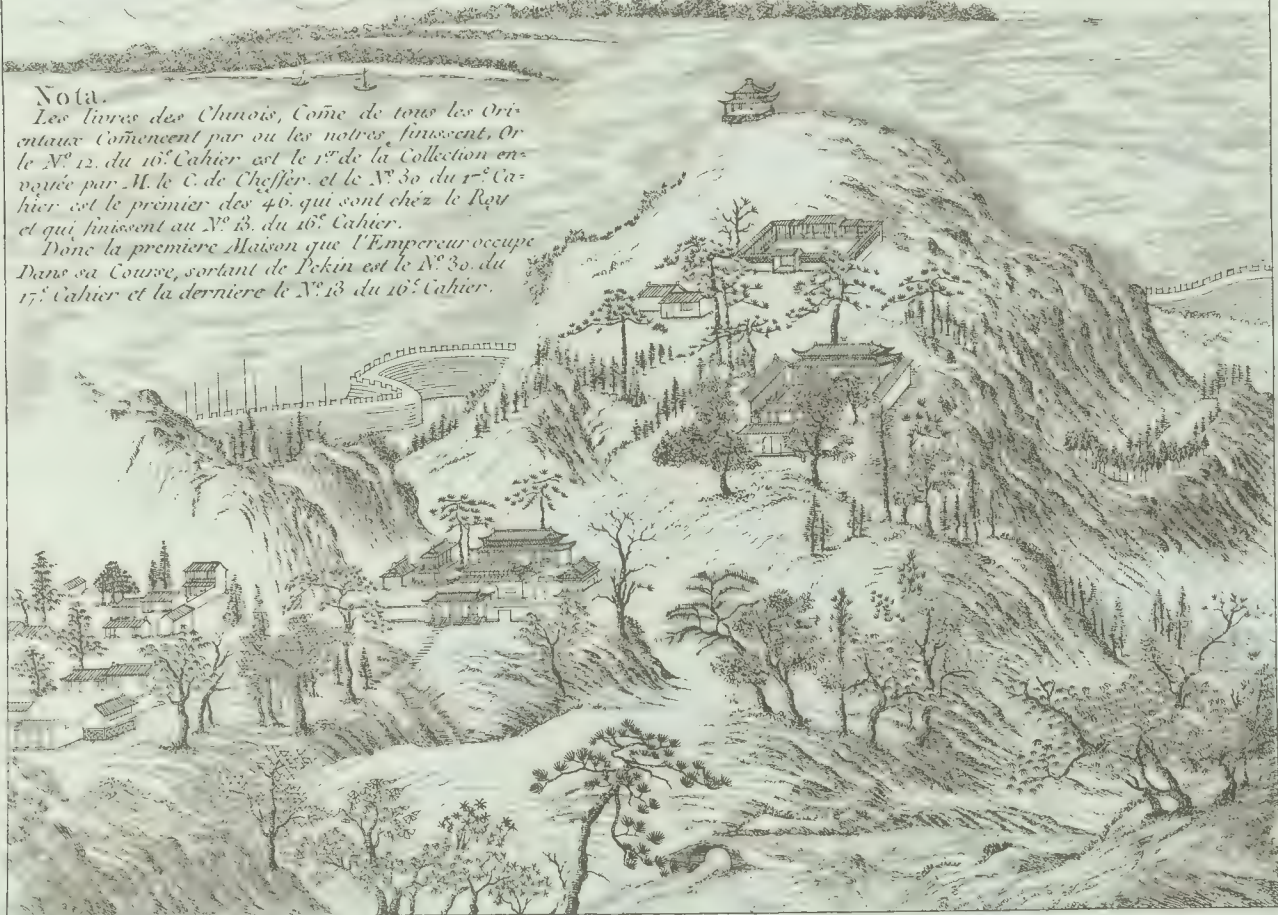 Nota.
Les livres des Chinois, Com̃e de tous les Ori-
entaux Com̃encent par ou les notres finissent, Or
le N.º 12. du 16.e Cahier est le 1.er de la Collection en=
voyée par M. le C. de Cheffer. et le N.º 30 du 17.e Ca=
hier est le prémier des 46. qui sont chéz le Roy
et qui finissent au N.º 13. du 16.e Cahier.
Donc la premiere Maison que l'Empereur occupe
Dans sa Course, sortant de Pekin est le N.º 30. du
17.e Cahier et la derniere le N.º 13 du 16.e Cahier.